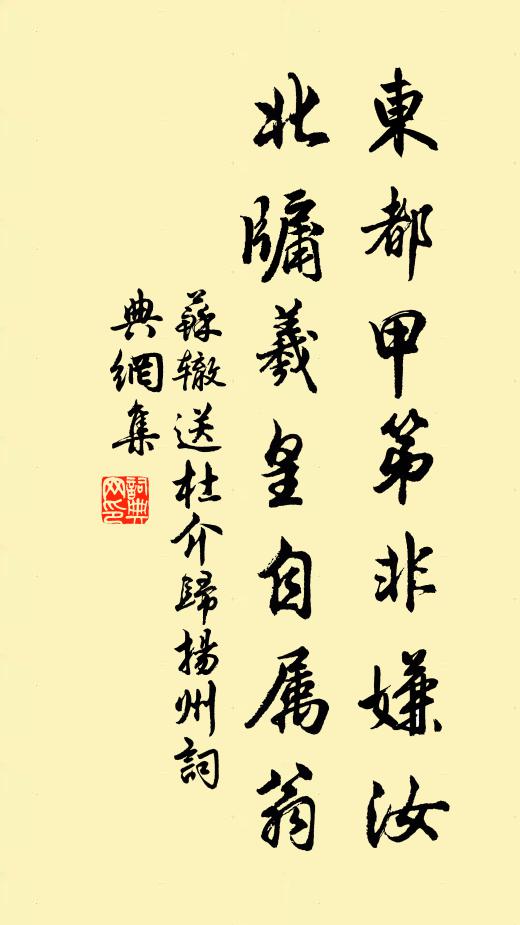 東都甲第非嫌汝
北牖羲皇自属翁
蘇辙送杜介歸揚州詞
典網集
詞典网印